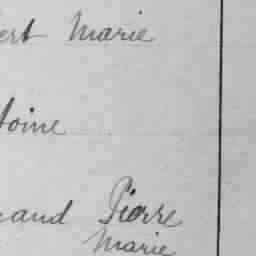 ert Marie
toine
and Pierre
Marie